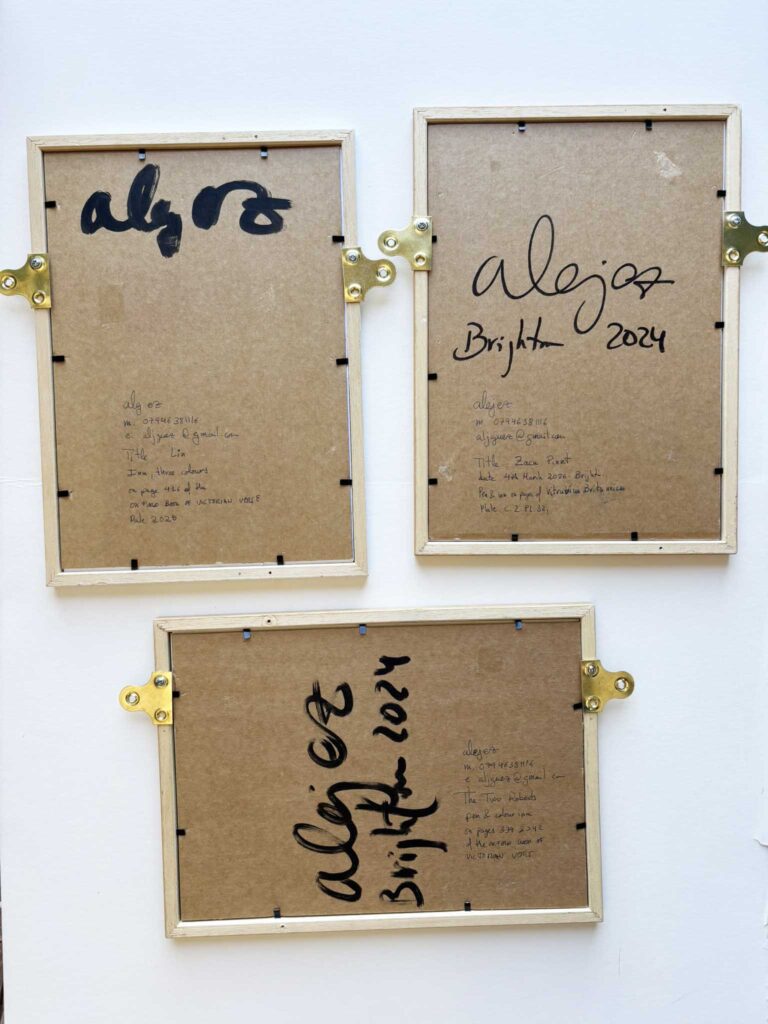 alej oz
alej oz
m. 07946381116
e: aljguez@gmail.com
Title Lin
Ink, three colours
on page 426 of the
OXFORD BOOK OF VICTORIAN VERSE
2025
alejoz
Brighton 2024
alejoz
m. 07946381116
aljguez@gmail.com
Title. Zack
date 4th March 2026. Brighton
Pen & ink on pages of Vitruvius Britannicus
alejoz
Brighton 2024
alejoz
m. 07946381116
e aljguez@gmail.com
The Two Roberts
pen & colour ink
on pages
of the OXFORD BOOK OF
VICTORIAN VERSE